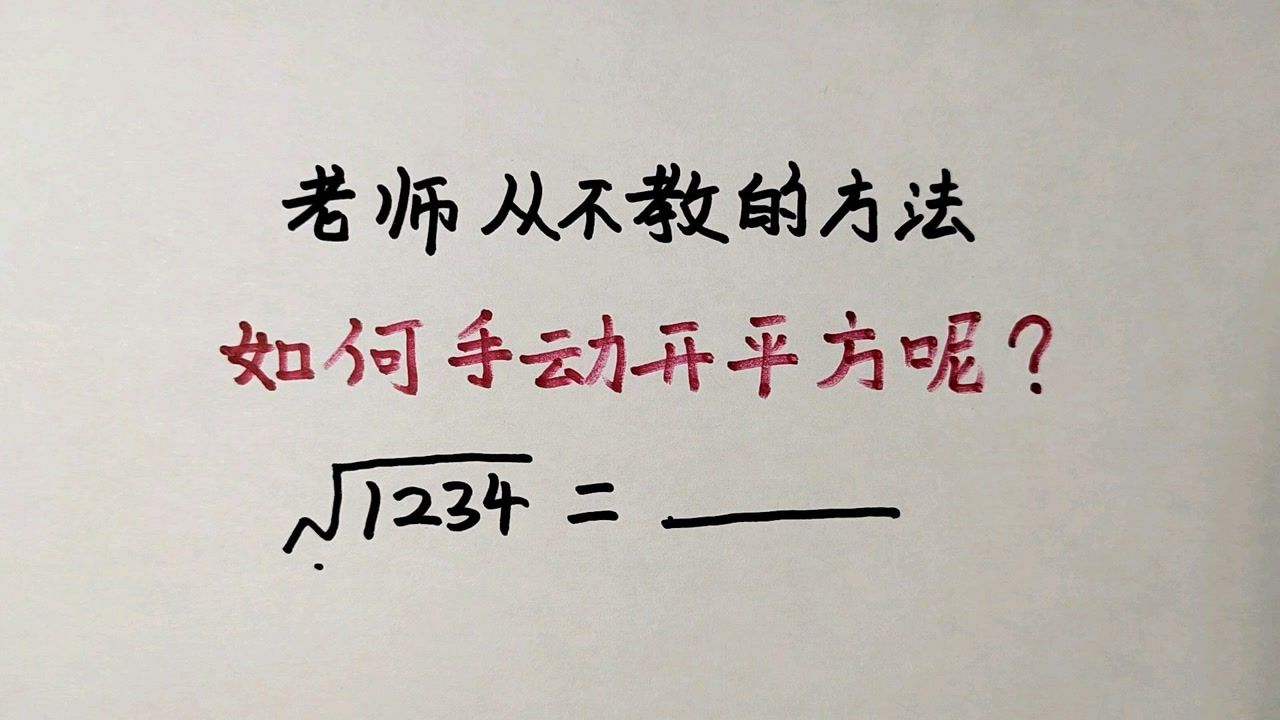 老师从不教的方法
如何手动开平方呢?
√1234 = ______